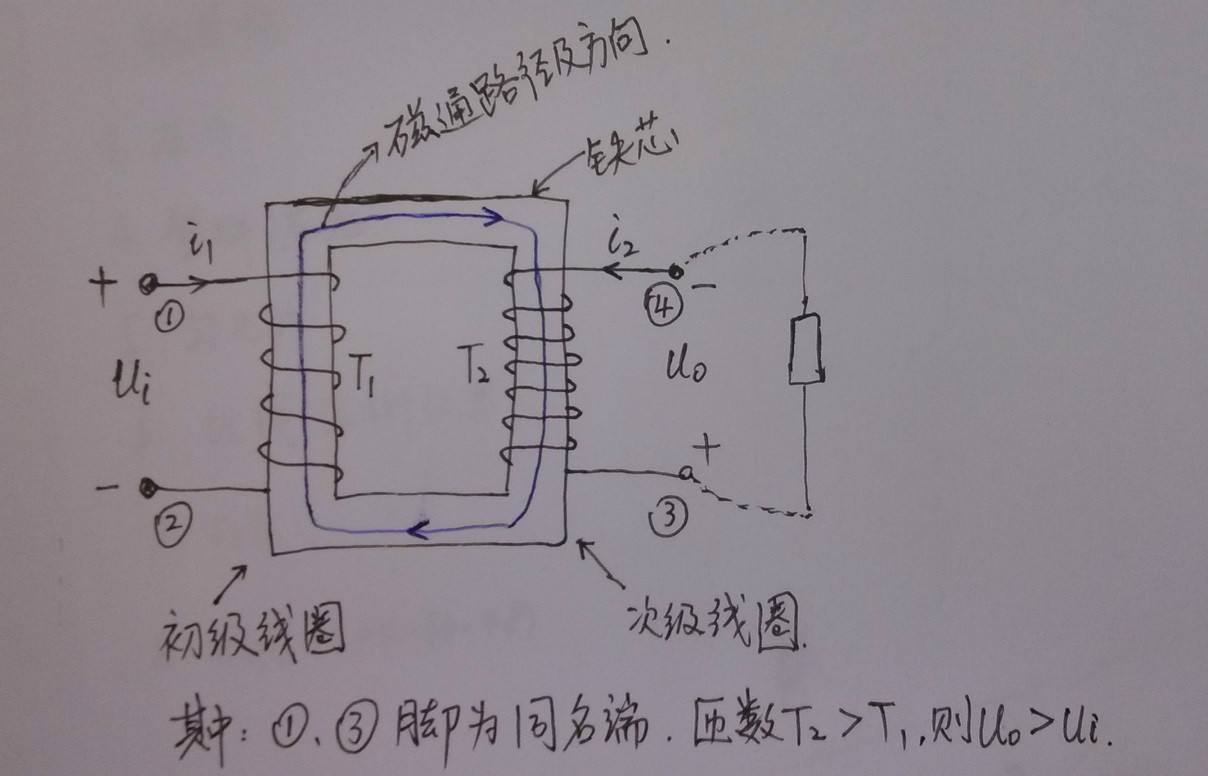 磁通路径及方向.
铁芯
i₁
i₂
+
①
-
④
Ui
T₁
T₂
Uo
+
-
②
③
初级线圈
次级线圈.
其中: ①、③ 脚为同名端. 匝数T₂>T₁,则Uo>Ui.